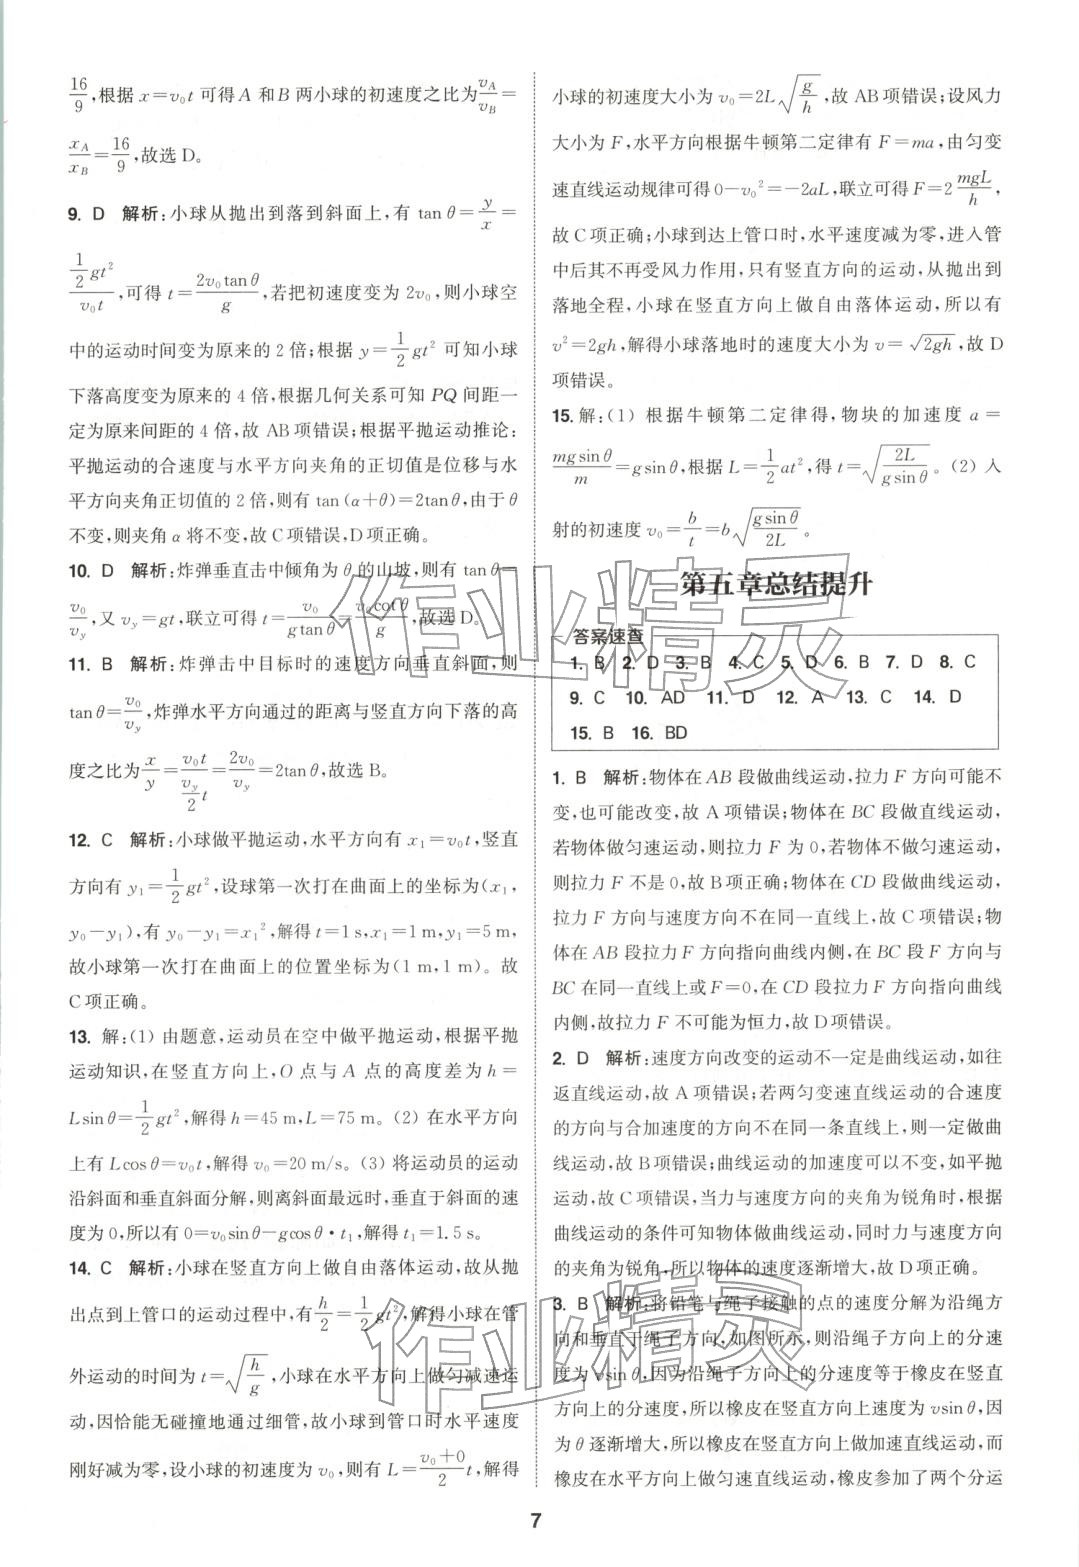 16/9,根据 x=v₀t 可得 A 和 B 两小球的初速度之比为 v_A/v_B=
x_A/x_B=16/9,故选 D。
9. D 解析:小球从抛出到落到斜面上,有 tanθ=y/x=
(1/2 gt²)/(v₀t),可得 t=2v₀tanθ/g,若把初速度变为 2v₀,则小球空
中的运动时间变为原来的 2 倍;根据 y=1/2 gt² 可知小球
下落高度变为原来的 4 倍,根据几何关系可知 PQ 间距一
定为原来间距的 4 倍,故 AB 项错误;根据平抛运动推论:
平抛运动的合速度与水平方向夹角的正切值是位移与水
平方向夹角正切值的 2 倍,则有 tan(α+θ)=2tanθ,由于 θ
不变,则夹角 α 将不变,故 C 项错误,D 项正确。
10. D 解析:炸弹垂直击中倾角为 θ 的山坡,则有 tanθ=
v₀/v_y,又 v_y=gt,联立可得 t=v₀/(g tanθ)=v₀cotθ/g,故选 D。
11. B 解析:炸弹击中目标时的速度方向垂直斜面,则
tanθ=v₀/v_y,炸弹水平方向通过的距离与竖直方向下落的高
度之比为 x/y=v₀t/(v_y/2 t)=2v₀/v_y=2tanθ,故选 B。
12. C 解析:小球做平抛运动,水平方向有 x₁=v₀t,竖直
方向有 y₁=1/2 gt²,设球第一次打在曲面上的坐标为(x₁,
y₀−y₁),有 y₀−y₁=x₁²,解得 t=1 s,x₁=1 m,y₁=5 m,
故小球第一次打在曲面上的位置坐标为(1 m,1 m)。故
C 项正确。
13. 解:(1) 由题意,运动员在空中做平抛运动,根据平抛
运动知识,在竖直方向上,O 点与 A 点的高度差为 h=
Lsinθ=1/2 gt²,解得 h=45 m,L=75 m。(2) 在水平方向
上有 Lcosθ=v₀t,解得 v₀=20 m/s。(3) 将运动员的运动
沿斜面和垂直斜面分解,则离斜面最远时,垂直于斜面的速
度为 0,所以有 0=v₀sinθ−gcosθ·t₁,解得 t₁=1.5 s。
14. C 解析:小球在竖直方向上做自由落体运动,故从抛
出点到上管口的运动过程中,有 h/2=1/2 gt²,解得小球在管
外运动的时间为 t=√(h/g),小球在水平方向上做匀减速运
动,因恰能无碰撞地通过细管,故小球到管口时水平速度
刚好减为零,设小球的初速度为 v₀,则有 L=(v₀+0)/2 t,解得
小球的初速度大小为 v₀=2L√(g/h),故 AB 项错误;设风力
大小为 F,水平方向根据牛顿第二定律有 F=ma,由匀变
速直线运动规律可得 0−v₀²=−2aL,联立可得 F=2 mgL/h,
故 C 项正确;小球到达上管口时,水平速度减为零,进入管
中后其不再受风力作用,只有竖直方向的运动,从抛出到
落地全程,小球在竖直方向上做自由落体运动,所以有
v²=2gh,解得小球落地时的速度大小为 v=√(2gh),故 D
项错误。
15. 解:(1) 根据牛顿第二定律得,物块的加速度 a=
mgsinθ/m=gsinθ,根据 L=1/2 at²,得 t=√(2L/(gsinθ))。(2) 入
射的初速度 v₀=b/t=b√(gsinθ/2L)。
第五章总结提升
答案速查
1. B 2. D 3. B 4. C 5. D 6. B 7. D 8. C
9. C 10. AD 11. D 12. A 13. C 14. D
15. B 16. BD
1. B 解析:物体在 AB 段做曲线运动,拉力 F 方向可能不
变,也可能改变,故 A 项错误;物体在 BC 段做直线运动,
若物体做匀速运动,则拉力 F 为 0,若物体不做匀速运动,
则拉力 F 不是 0,故 B 项正确;物体在 CD 段做曲线运动,
拉力 F 方向与速度方向不在同一直线上,故 C 项错误;物
体在 AB 段拉力 F 方向指向曲线内侧,在 BC 段 F 方向与
BC 在同一直线上或 F=0,在 CD 段拉力 F 方向指向曲线
内侧,故拉力 F 不可能为恒力,故 D 项错误。
2. D 解析:速度方向改变的运动不一定是曲线运动,如往
返直线运动,故 A 项错误;若两匀变速直线运动的合速度
的方向与合加速度的方向不在同一条直线上,则一定做曲
线运动,故 B 项错误;曲线运动的加速度可以不变,如平抛
运动,故 C 项错误,当力与速度方向的夹角为锐角时,根据
曲线运动的条件可知物体做曲线运动,同时力与速度方向
的夹角为锐角,所以物体的速度逐渐增大,故 D 项正确。
3. B 解析:将铅笔与绳子接触的点的速度分解为沿绳方
向和垂直于绳子方向,如图所示,则沿绳子方向上的分速
度为 vsinθ,因为沿绳子方向上的分速度等于橡皮在竖直
方向上的分速度,所以橡皮在竖直方向上速度为 vsinθ,因
为 θ 逐渐增大,所以橡皮在竖直方向上做加速直线运动,而
橡皮在水平方向上做匀速直线运动,橡皮参加了两个分运
7
作业精灵
作业精灵